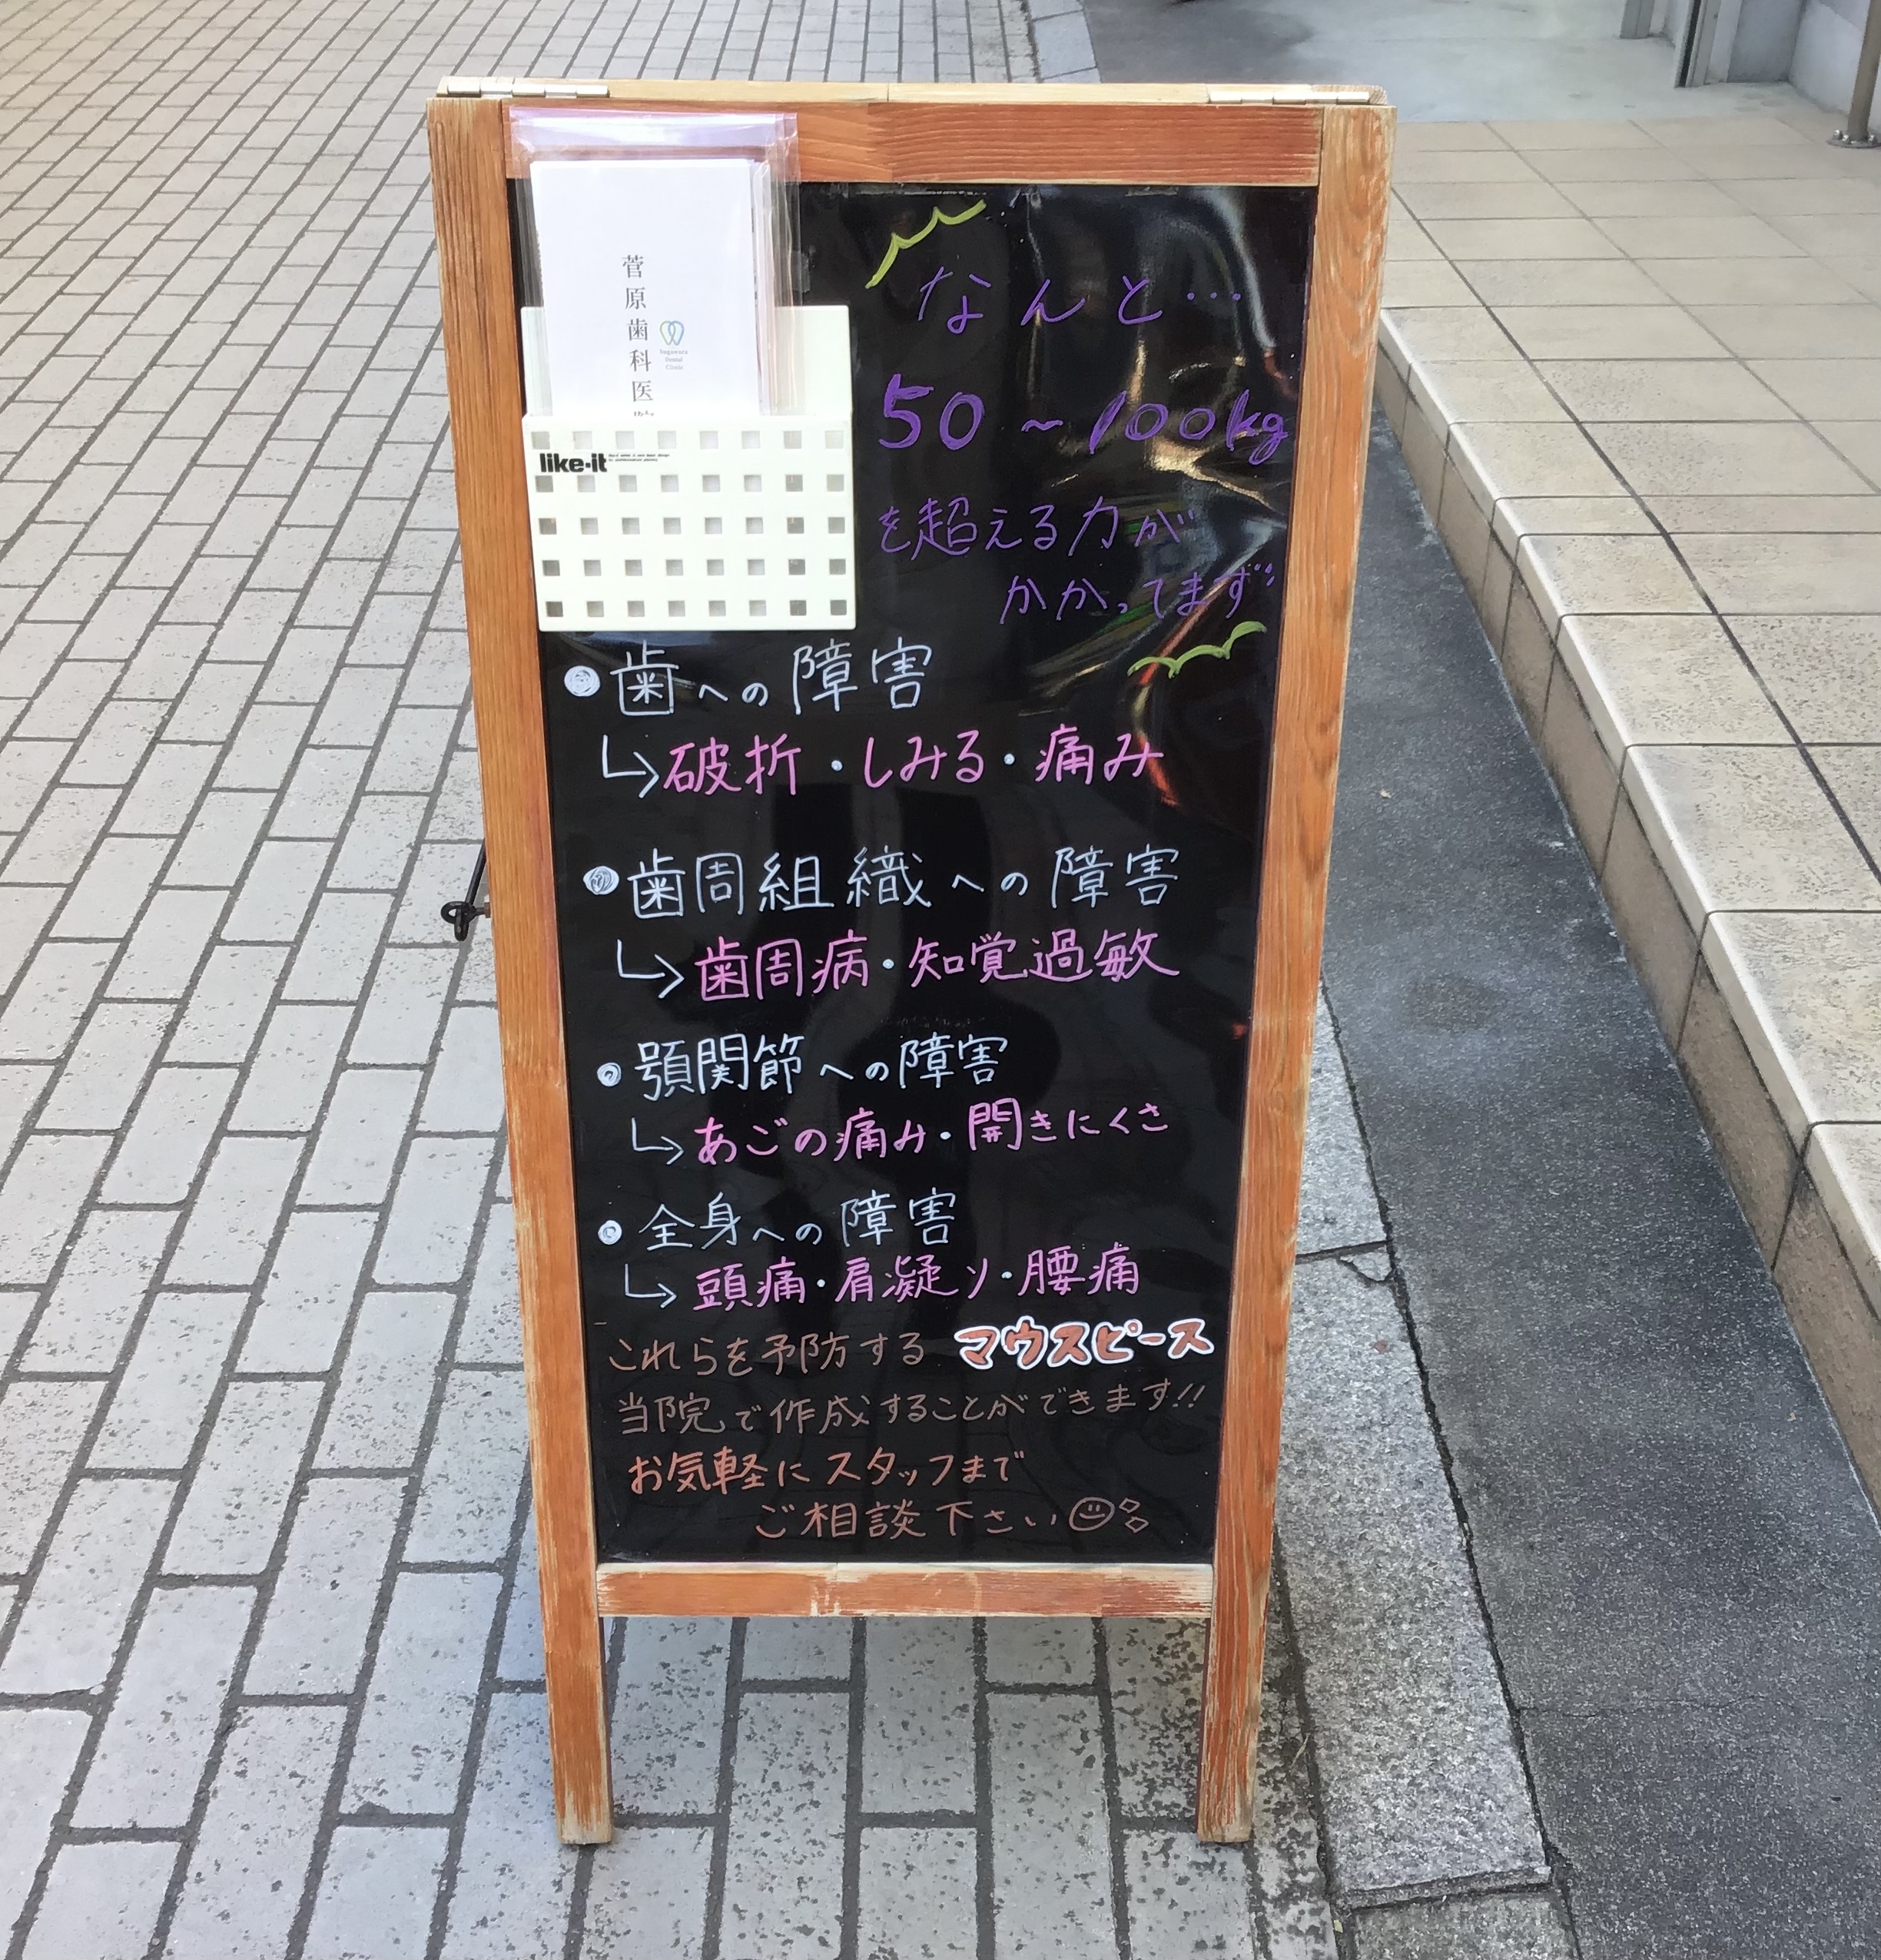 菅原歯科医院
Sugiwara
Dental
Clinic
like-it
なんと…
50～100kg
を超える力が
かかってます
●歯への障害
↳破折・しみる・痛み
●歯周組織への障害
↳歯周病・知覚過敏
●顎関節への障害
↳あごの痛み・開きにくさ
●全身への障害
↳頭痛・肩凝り・腰痛
これらを予防する マウスピース
当院で作成することができます!!
お気軽にスタッフまで
ご相談下さい